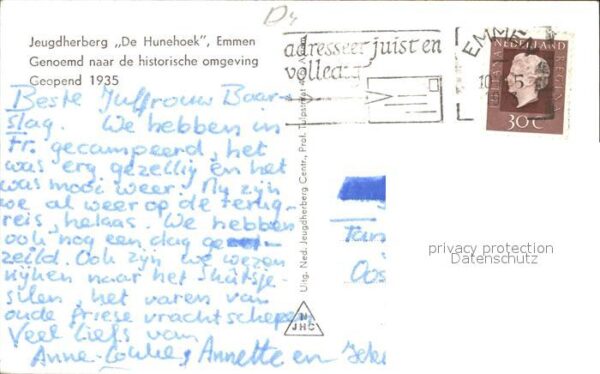 Jeugdherberg „De Hunehoek", Emmen
Genoemd naar de historische omgeving
Geopend 1935
Beste Juffrouw Baar-
slag. We hebben in
Fr. gecampeerd, het
was erg gezellig en het
was mooi weer. Nu zijn
we al weer op de terug-
reis, helaas. We hebben
ook nog een dag ge-
zeild. Ook zijn we wezen
kijken naar het skûtsje-
silen, het varen van
oude Friese vrachtschepen
Veel liefs van
Anne-Louke, Annette en
Uitg. Ned. Jeugdherberg Centr., Prof. Tulpstraat
N
JHC
adresseer juist en
volledig
EMMEN
10
JULIANA REGINA
NEDERLAND
30 C
privacy protection
Datenschutz